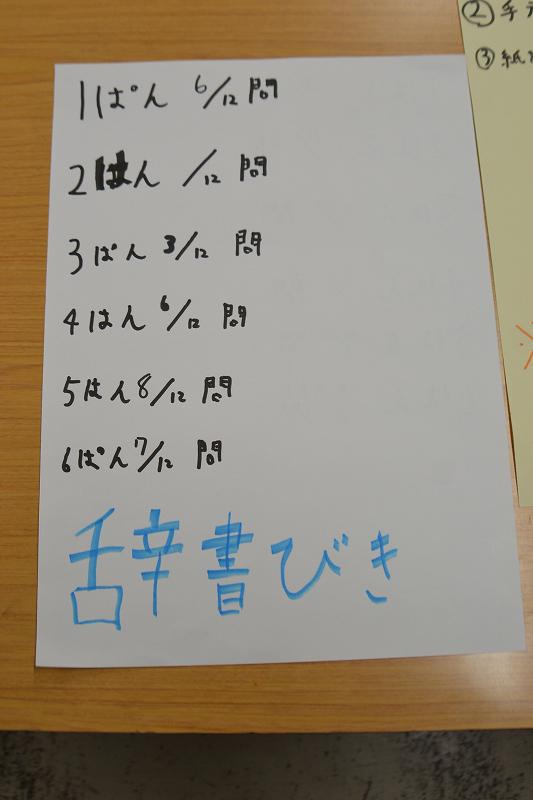 1ぱん 6/12問
2はん /12問
3ぱん 3/12問
4はん 6/12問
5はん 8/12問
6ぱん 7/12問
辞書びき
② 手
③ 紙